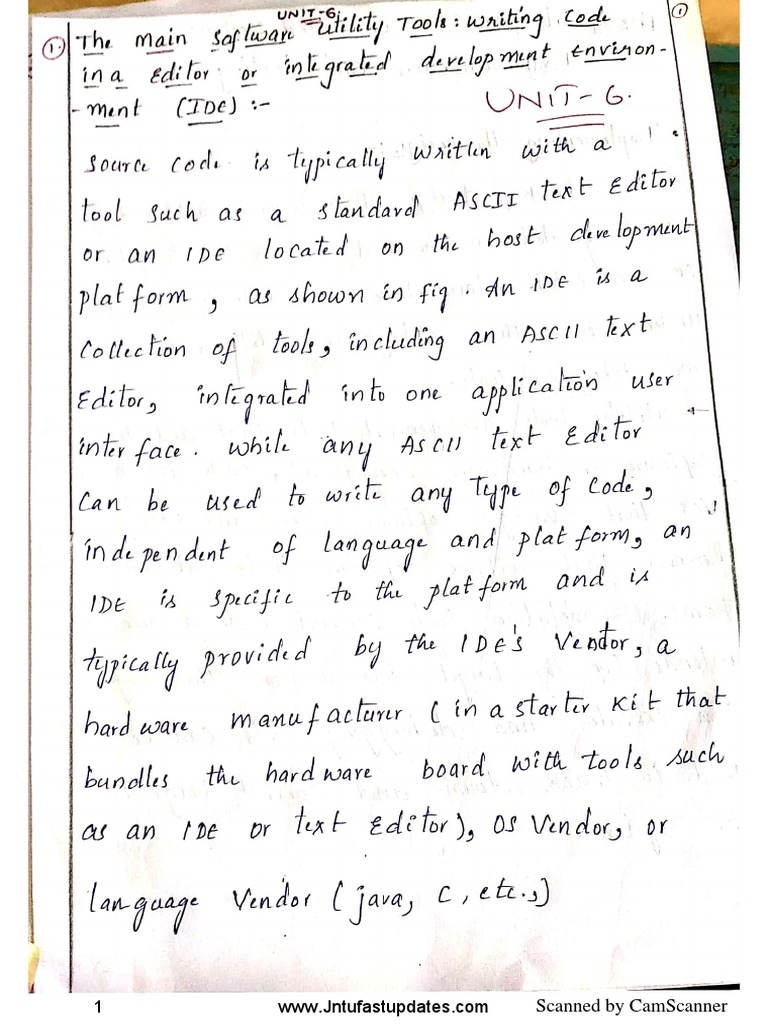 UNIT-6
①
① The main software utility Tools: writing code
in a Editor or integrated development environ-
-ment (IDE) :-
UNIT-6.
source code is typically written with a
tool such as a standard ASCII text Editor
or an IDE located on the host development
platform, as shown in fig. An IDE is a
collection of tools, including an ASCII text
Editor, integrated into one application user
interface. while any ASCII text Editor
can be used to write any type of code,
independent of language and platform, an
IDE is specific to the platform and is
typically provided by the IDE's Vendor, a
hardware manufacturer (in a starter kit that
bundles the hardware board with tools such
as an IDE or text Editor), OS Vendor, or
language Vendor (java, C, etc.,)
1 www.Jntufastupdates.com Scanned by CamScanner